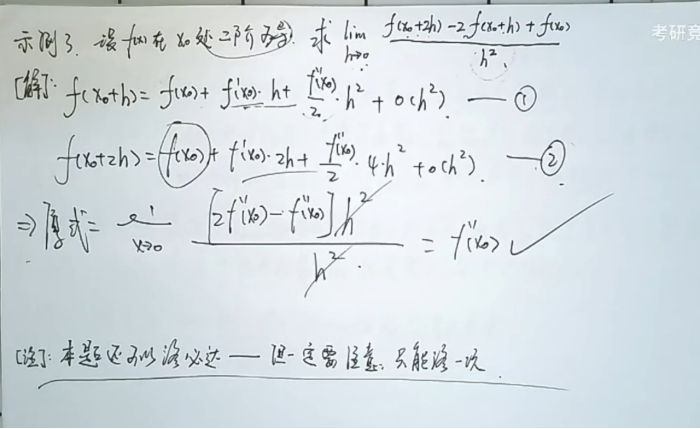 示例3. 设 f(x) 在 x₀ 处二阶可导. 求 lim h→0 (f(x₀+2h)-2f(x₀+h)+f(x₀))/h².
考研竞
[解]: f(x₀+h)= f(x₀)+ f'(x₀)·h+ f''(x₀)/2·h² + o(h²). ——①
f(x₀+2h)= f(x₀)+ f'(x₀)·2h+ f''(x₀)/2·4·h² +o(h²). ——②
⇒原式= lim x→0 [2f''(x₀)-f''(x₀)]h²/h². = f''(x₀) ✓
[注]: 本题还可以洛必达 —— 但一定要注意. 只能洛一次